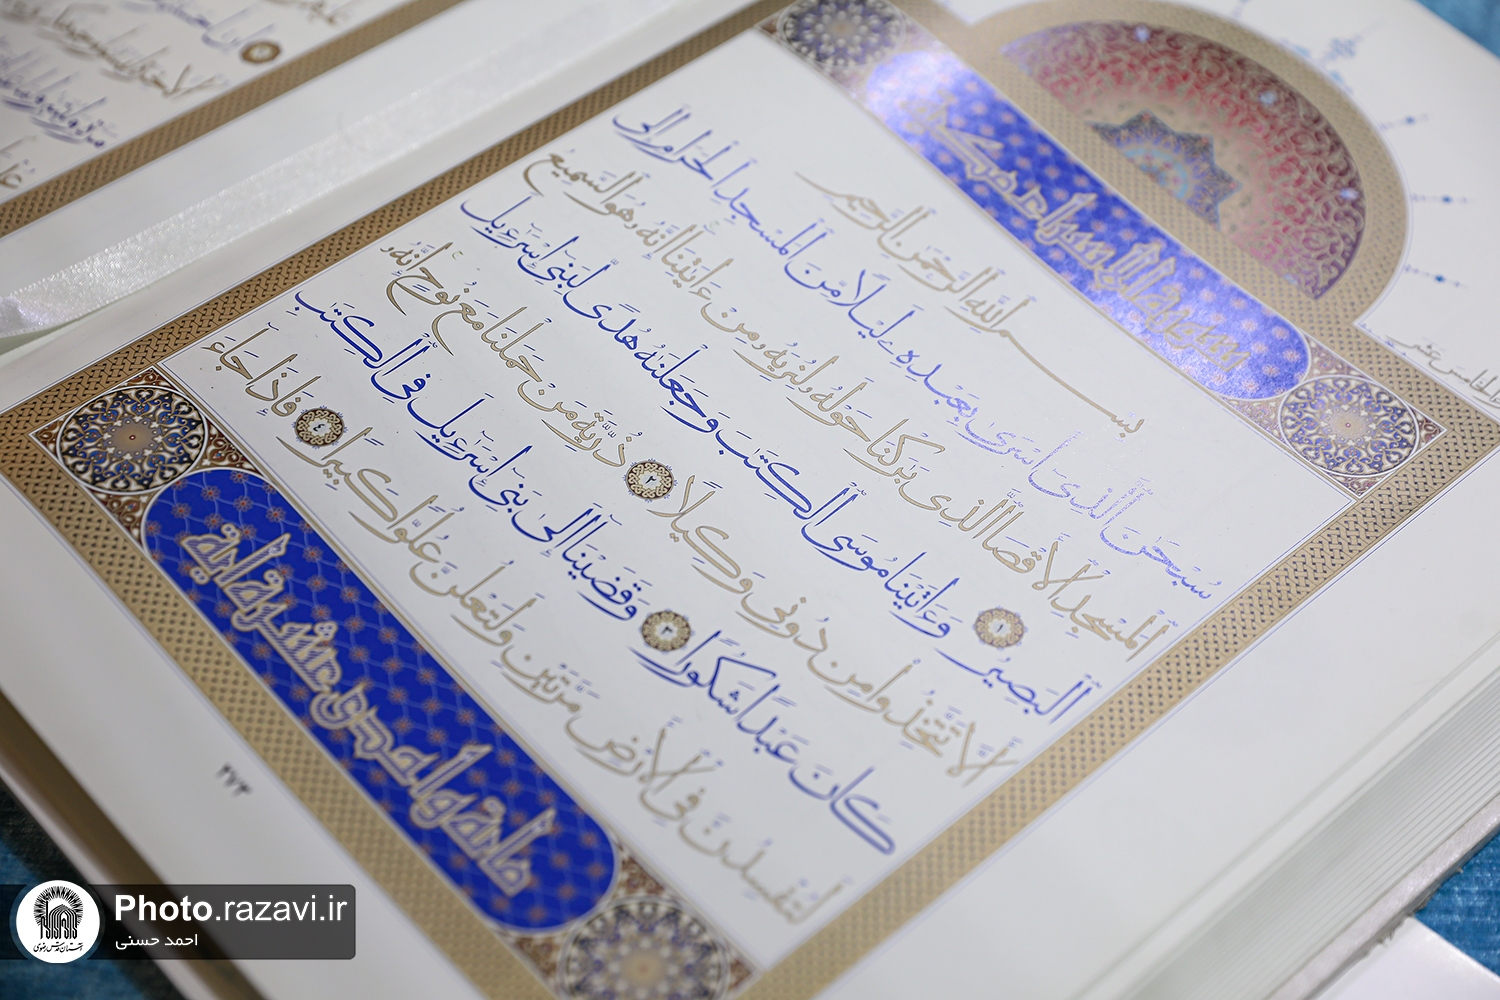 سورة الإسراء مكية
بِسْمِ اللَّهِ الرَّحْمَنِ الرَّحِيمِ
سُبْحَٰنَ الَّذِى أَسْرَىٰ بِعَبْدِهِۦ لَيْلًا مِّنَ الْمَسْجِدِ الْحَرَامِ إِلَى
الْمَسْجِدِ الْأَقْصَا الَّذِى بَٰرَكْنَا حَوْلَهُۥ لِنُرِيَهُۥ مِنْ ءَايَٰتِنَا إِنَّهُۥ هُوَ السَّمِيعُ
الْبَصِيرُ ١ وَءَاتَيْنَا مُوسَى الْكِتَٰبَ وَجَعَلْنَٰهُ هُدًى لِّبَنِى إِسْرَٰٓءِيلَ
أَلَّا تَتَّخِذُوا مِن دُونِى وَكِيلًا ٢ ذُرِّيَّةَ مَنْ حَمَلْنَا مَعَ نُوحٍ إِنَّهُۥ
كَانَ عَبْدًا شَكُورًا ٣ وَقَضَيْنَا إِلَىٰ بَنِى إِسْرَٰٓءِيلَ فِى الْكِتَٰبِ
لَتُفْسِدُنَّ فِى الْأَرْضِ مَرَّتَيْنِ وَلَتَعْلُنَّ عُلُوًّا كَبِيرًا ٤ فَإِذَا جَاءَ
مائة وإحدى عشرة آية
۲۷۳
Photo.razavi.ir
احمد حسنی
آستان قدس رضوی